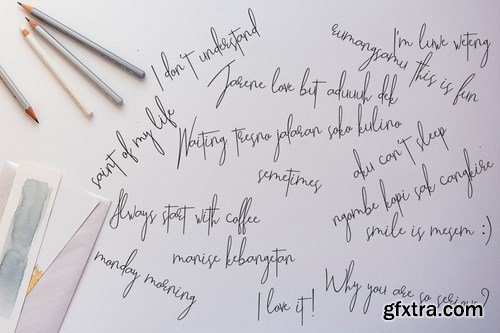 I don't understand
rumangsamu this is fun
I'm luwe weteng
Jarene love but aduuuh dek
saint of my life
Waiting tresno jalaran soko kulino
aku can't sleep
sometimes
ngombe kopi sak cangkire
Always start with coffee
smile is mesem :)
monday morning
manise kebangetan
I love it!
Why you are so serious?
gfxtra.com